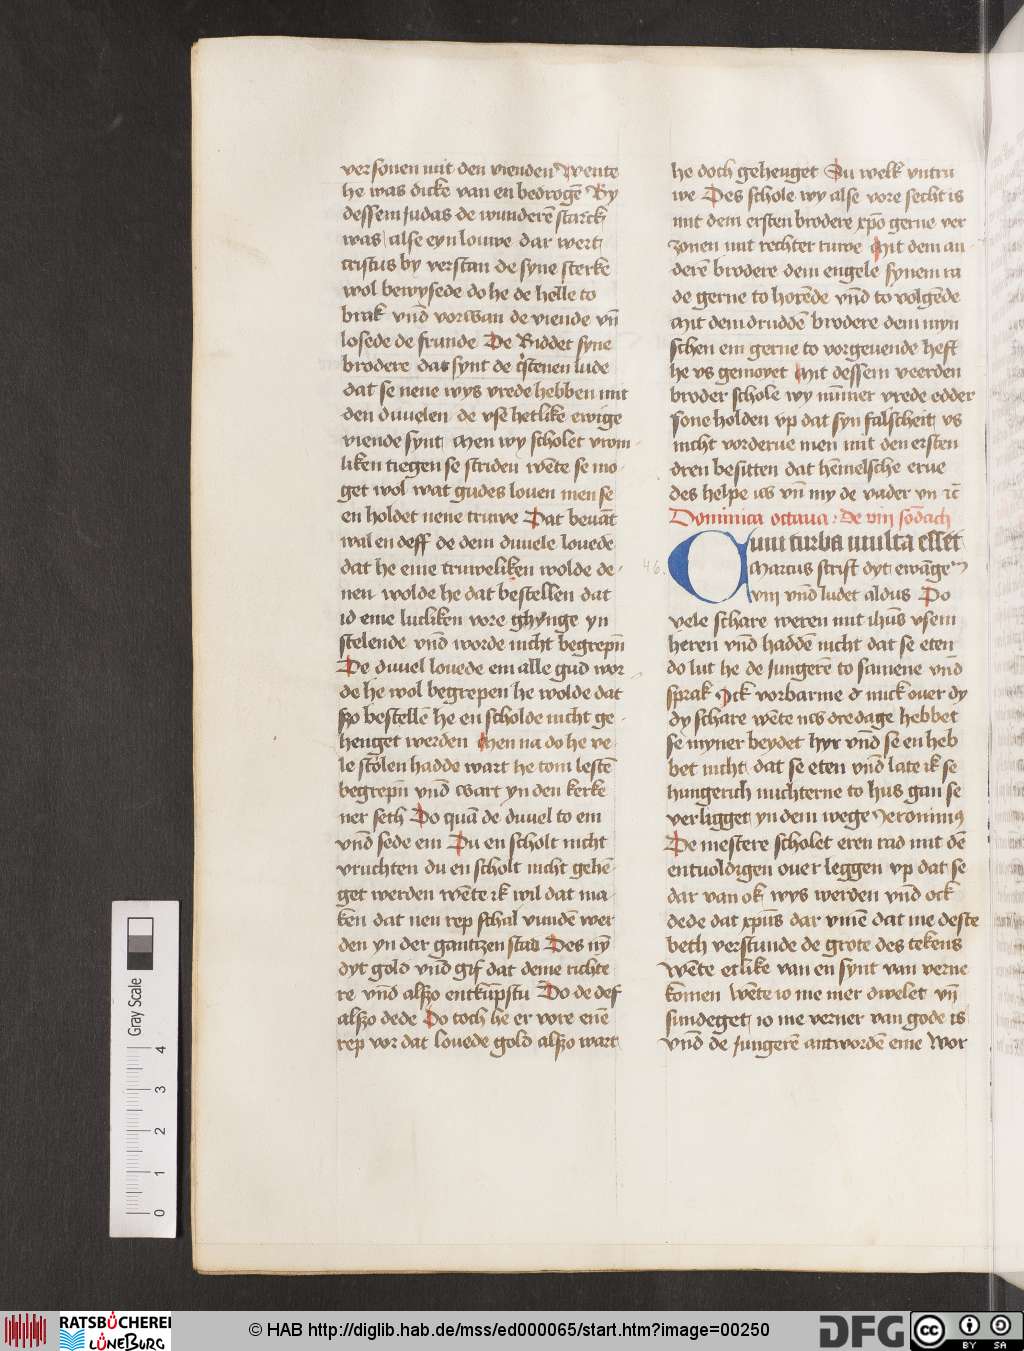 versonen mit den vienden Wente
he was dicke van en bedrogē By
dessem Judas de wunderē starck
was alse eyn louwe dar wert
cristus by verstan de syne sterke
wol bewysede do he de helle to
brak vn̄d vorwan de viende vn̄
losede de frunde De Riddet syne
brodere dat synt de cristenen lude
dat se nene wys vrede hebben mit
den duuelen de vse hetlike ewige
viende synt Men wy scholet vrom
liken tiegen se striden wēte se mo
get wol wat gudes louen men se
en holdet nene truwe Dat beuāt
wal en deff de dem duuele louede
dat he eme truweliken wolde de
nen wolde he dat bestellen dat
id eme lucliken vore ghynge yn
stelende vn̄d worde nicht begrepn̄
De duuel louede em alle gud wor
de he wol begrepen he wolde dat
szo bestellē he en scholde nicht ge
henget werden Men na do he ve
le stolen hadde wart he tom lestē
begrepn̄ vn̄d wart yn den kerke
ner seth Do quā de duuel to em
vn̄d sede em Du en scholt nicht
vruchten du en scholt nicht gehē
get werden wēte ik wil dat ma
ken dat nen rep schal vundē wer
den yn der gantzen stad Des nȳ
dyt gold vn̄d gif dat deme richte
re vn̄d alszo entkūpstu Do de def
alszo dede Do toch he er vore enē
rep vor dat louede gold alszo wart
he doch gehenget Su welk vntru
we Des schole wy alse vore secht is
mit dem ersten brodere xp̄o gerne ver
zonen mit rechter truwe Mit dem an
derē brodere dem engele synem ra
de gerne to horēde vn̄d to volgēde
Mit dem druddē brodere dem myn
schen em gerne to vorgeuende heft
he vs gemoyet Mit dessem veerden
broder schole wy nūmer vrede edder
sone holden vp dat syn falscheit vs
nicht vorderue men mit den ersten
dren besitten dat hēmelsche erue
des helpe iw vn̄ my de vader vn̄ ꝛc̄
Dominica octaua De viii sōdach
Cum turba multa esset
Marcus scrift dyt ewāge
viii vn̄d ludet aldus Do
46.
vele schare weren mit ih̄us vsem
heren vn̄d haddē nicht dat se eten
do lut he de Jungerē to samene vn̄d
sprak Ick vorbarme mick ouer dy
dy schare wēte nw dre dage hebbet
se myner beydet hyr vn̄d se en heb
bet nicht dat se eten vn̄d late ik se
hungerich nuchterne to hus gan se
verligget yn dem wege Jeronimus
De mestere scholet eren rad mit dē
entuoldigen ouer leggen vp dat se
dar van ok wys werden vn̄d ock
dede dat xp̄us dar vmē dat me deste
beth verstunde de grote des tekens
wēte etlike van en synt van verne
komen wēte io me mer dwelet vn̄
sundeget io me verner van gode is
vn̄d de Jungerē antwordē eme Wor
Gray Scale
4
3
2
1
0
RATSBÜCHEREI
LÜNEBURG
© HAB http://diglib.hab.de/mss/ed000065/start.htm?image=00250
DFG
cc
BY
SA